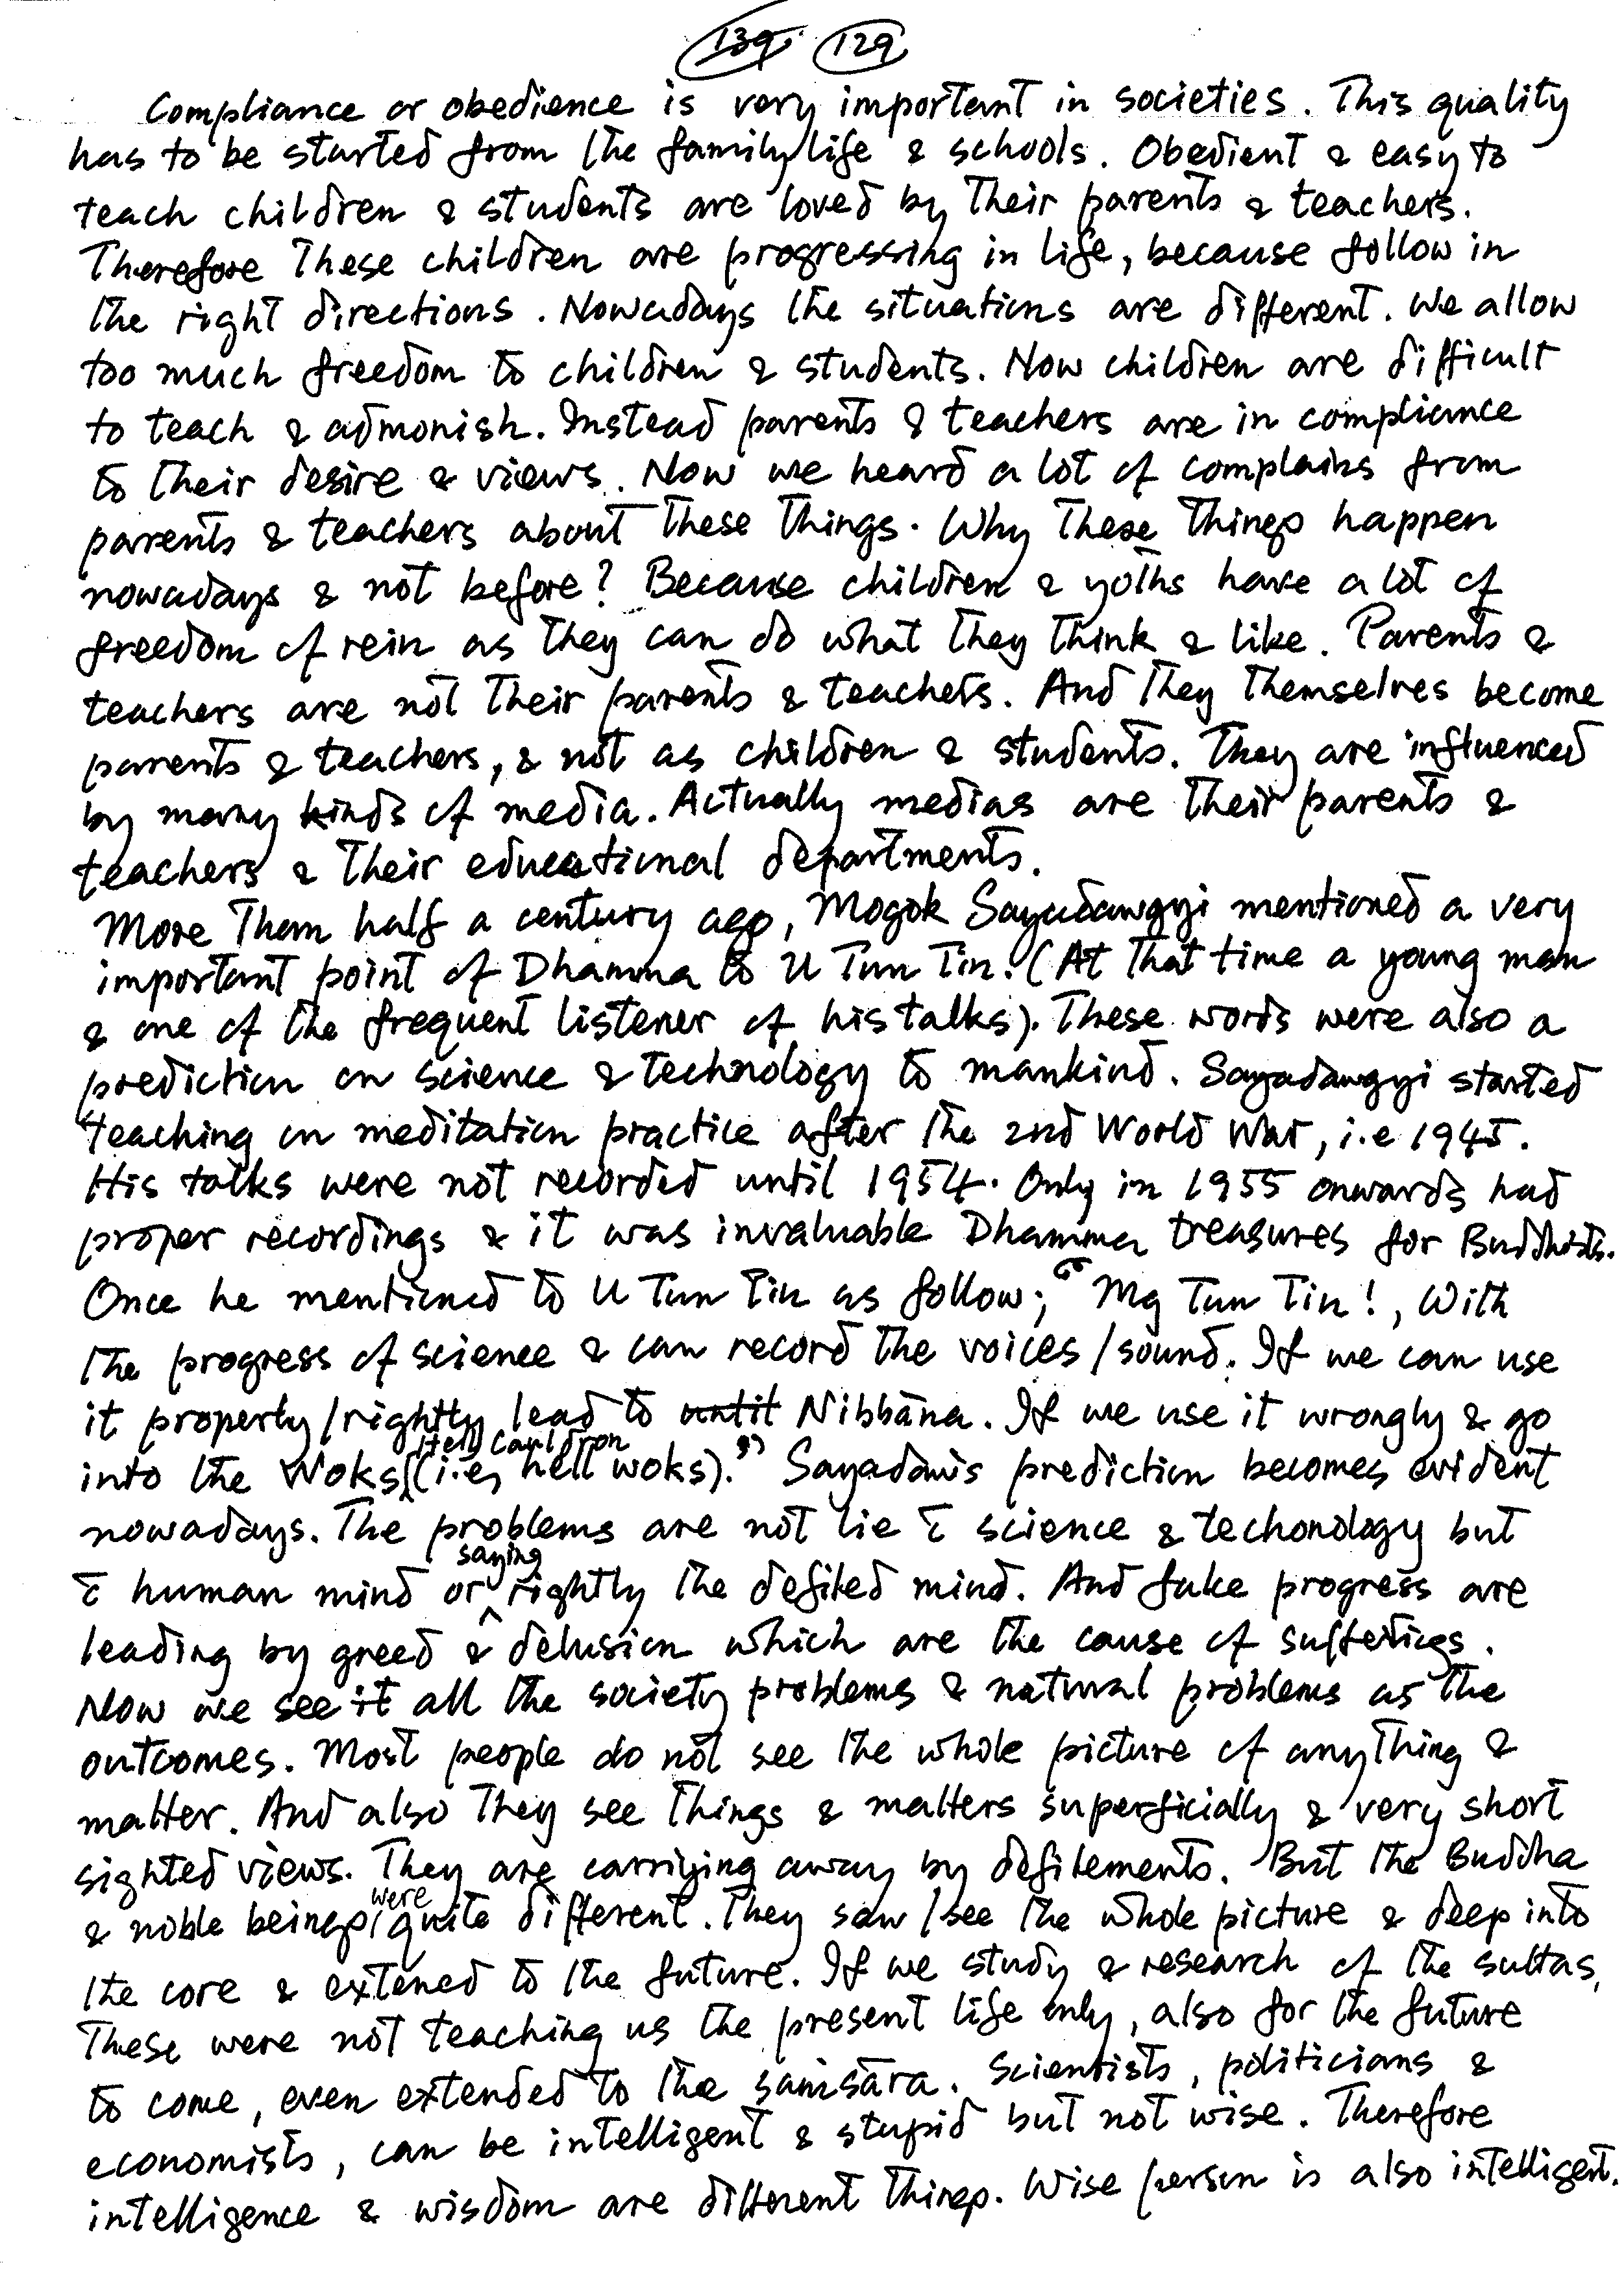 139 129
Compliance or obedience is very important in societies. This quality
has to be started from the family life & schools. Obedient & easy to
teach children & students are loved by their parents & teachers.
Therefore these children are progressing in life, because follow in
the right directions. Nowadays the situations are different. We allow
too much freedom to children & students. Now children are difficult
to teach & admonish. Instead parents & teachers are in compliance
to their desire & views. Now we heard a lot of complains from
parents & teachers about these things. Why these things happen
nowadays & not before? Because children & yoths have a lot of
freedom of rein as they can do what they think & like. Parents &
teachers are not their parents & teachers. And they themselves become
parents & teachers, & not as children & students. They are influenced
by many kinds of media. Actually medias are their parents &
teachers & their educational departments.
More than half a century ago, Mogok Sayadawgyi mentioned a very
important point of Dhamma to U Tun Tin. (At that time a young man
& one of the frequent listener of his talks). These words were also a
prediction on science & technology to mankind. Sayadawgyi started
teaching on meditation practice after the 2nd World War, i.e 1945.
His talks were not recorded until 1954. Only in 1955 onwards had
proper recordings & it was invaluable Dhamma treasures for Buddhists.
Once he mentioned to U Tun Tin as follow; "Mg Tun Tin!, With
the progress of science & can record the voices/sound. If we can use
it properly/rightly lead to until Nibbāna. If we use it wrongly & go
into the Woks (Hell cauldron (i.e, hell woks)." Sayadaw's prediction becomes evident
nowadays. The problems are not lie c̄ science & techonology but
c̄ human mind or saying rightly the defiled mind. And fake progress are
leading by greed & delusion which are the cause of sufferings.
Now we see it all the society problems & natural problems as the
outcomes. Most people do not see the whole picture of anything &
matter. And also they see things & matters superficially & very short
sighted views. They are carrying away by defilements. But the Buddha
& noble beings were quite different. They saw/see the whole picture & deep into
the core & extened to the future. If we study & research of the suttas,
These were not teaching us the present life only, also for the future
to come, even extended to the saṁsāra. Scientists, politicians &
economists, can be intelligent & stupid but not wise. Therefore
intelligence & wisdom are different things. Wise person is also intelligent.